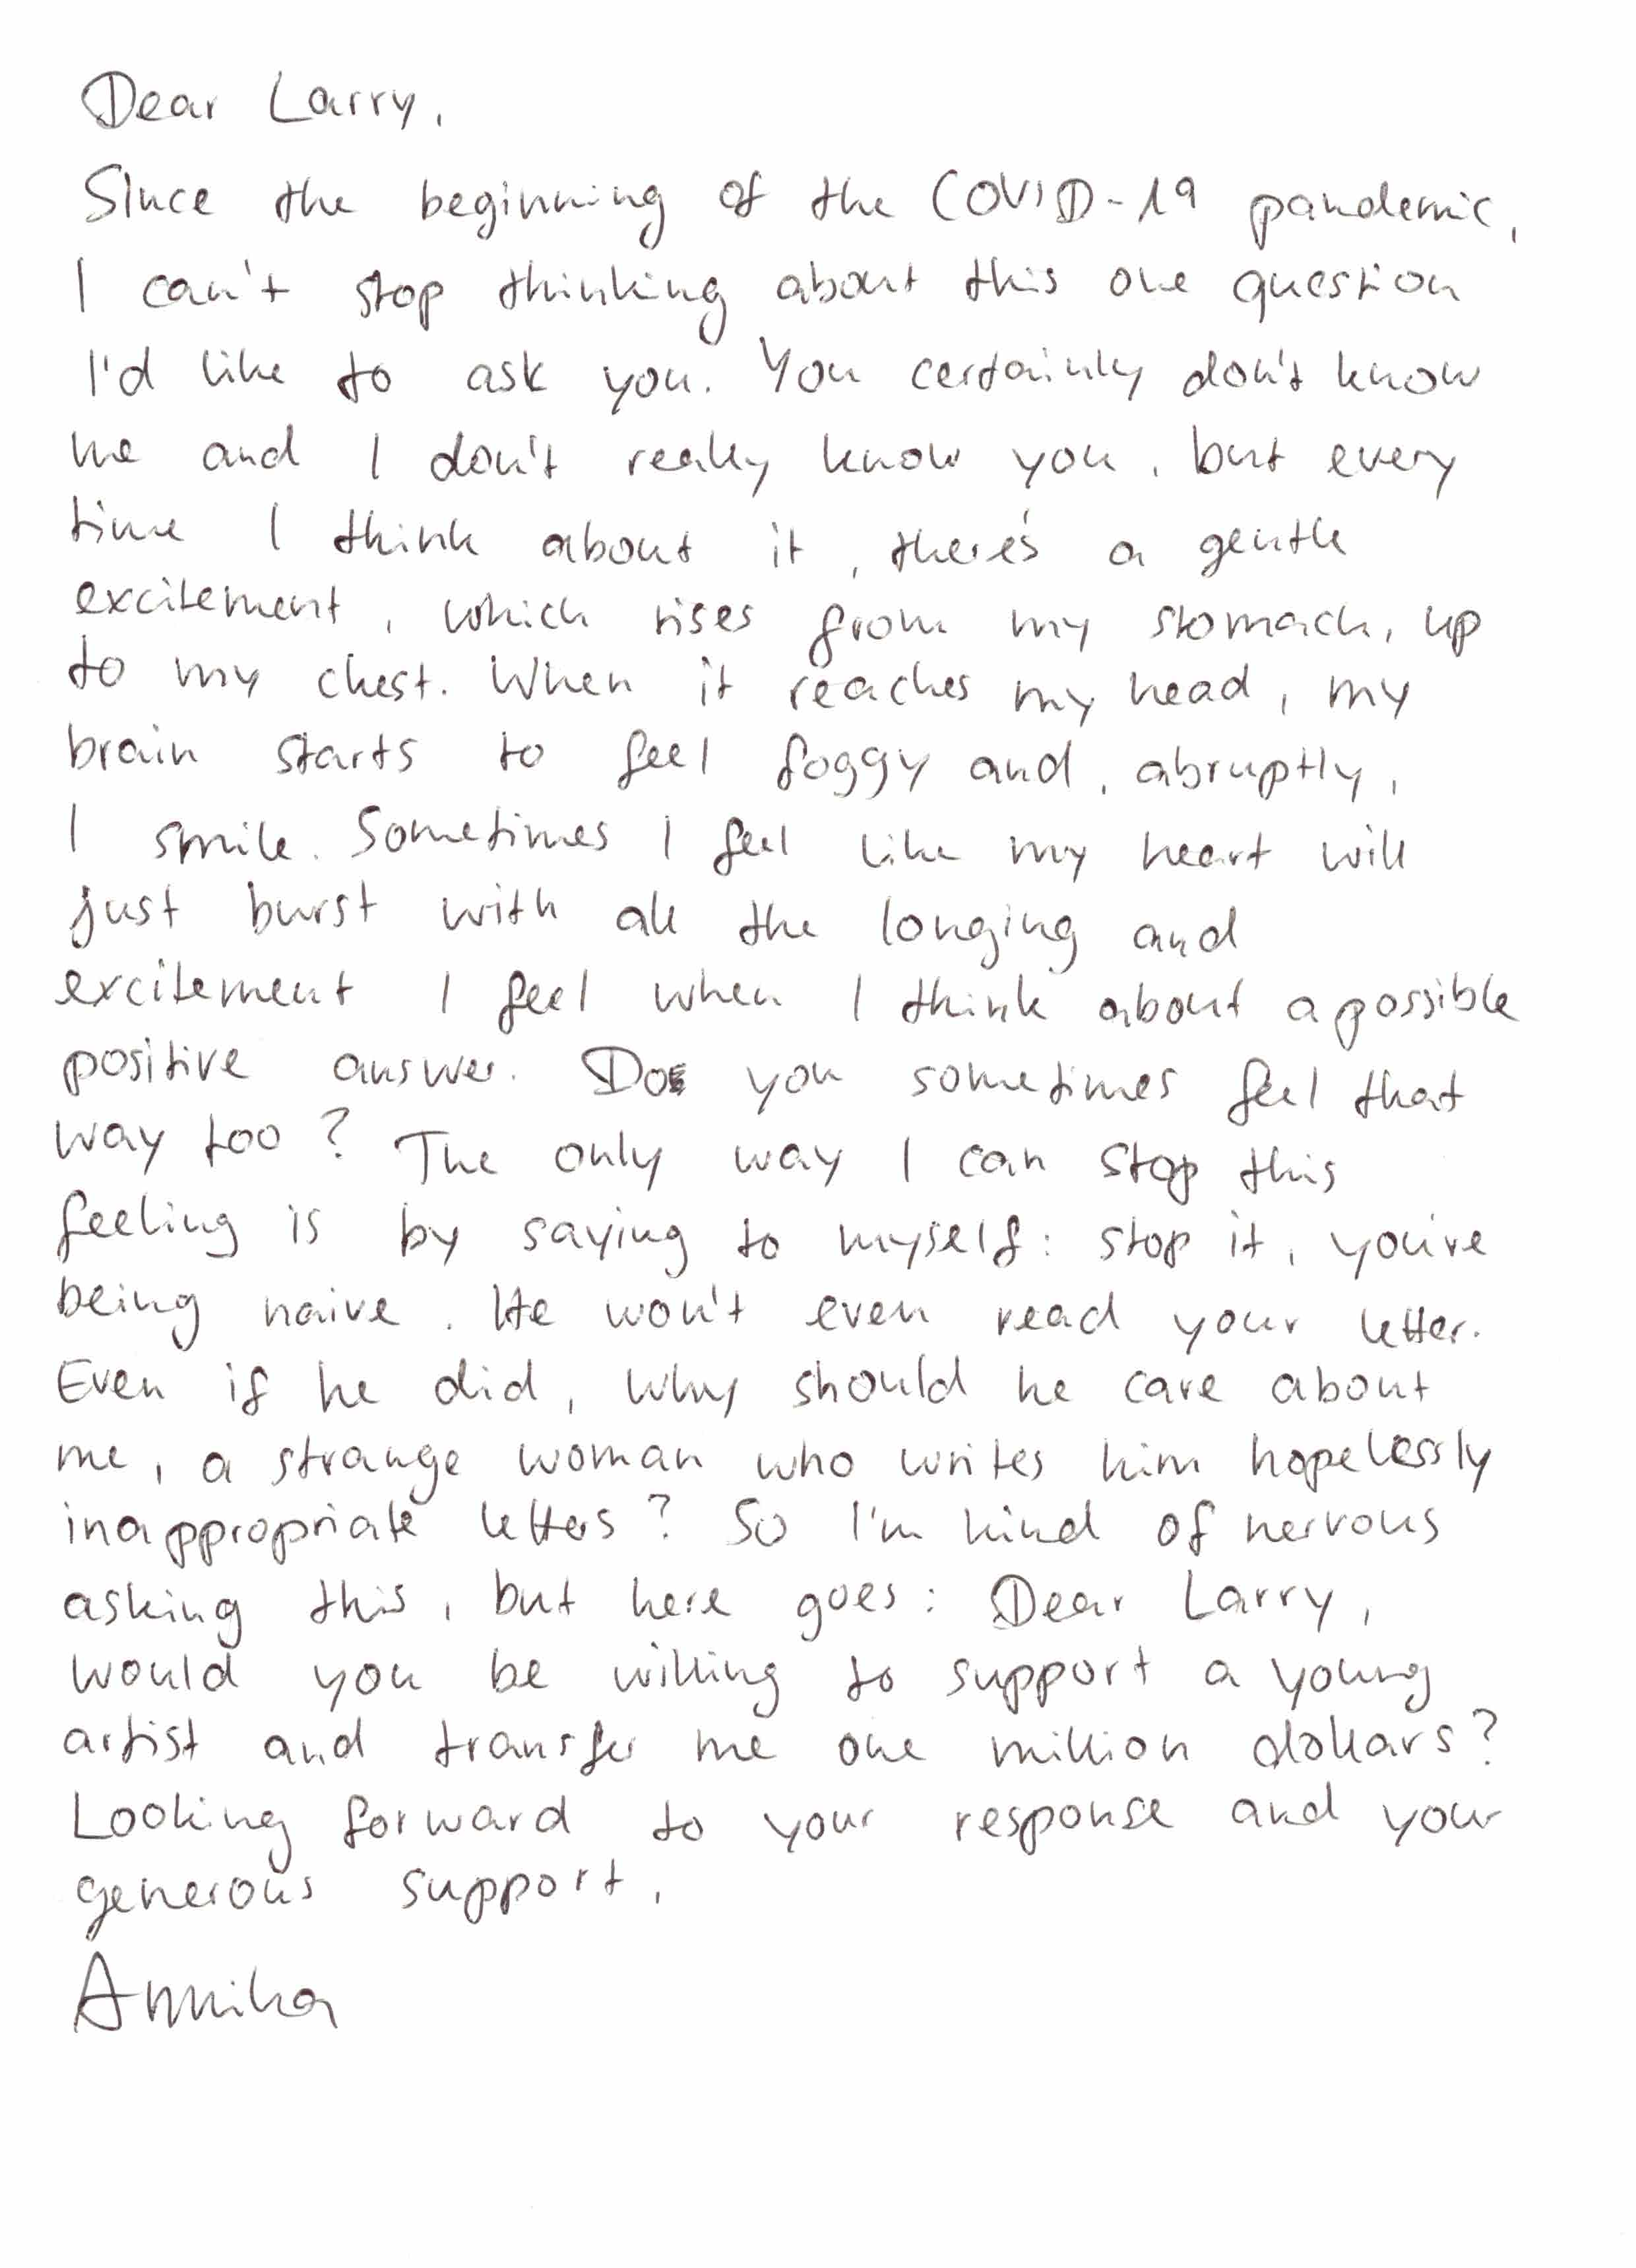 Dear Larry,
Since the beginning of the COVID-19 pandemic,
I can't stop thinking about this one question
I'd like to ask you. You certainly don't know
me and I don't really know you, but every
time I think about it, there's a gentle
excitement, which rises from my stomach, up
to my chest. When it reaches my head, my
brain starts to feel foggy and, abruptly,
I smile. Sometimes I feel like my heart will
just burst with all the longing and
excitement I feel when I think about a possible
positive answer. Do you sometimes feel that
way too? The only way I can stop this
feeling is by saying to myself: stop it, you're
being naive. He won't even read your letter.
Even if he did, why should he care about
me, a strange woman who writes him hopelessly
inappropriate letters? So I'm kind of nervous
asking this, but here goes: Dear Larry,
would you be willing to support a young
artist and transfer me one million dollars?
Looking forward to your response and your
generous support,
Annika